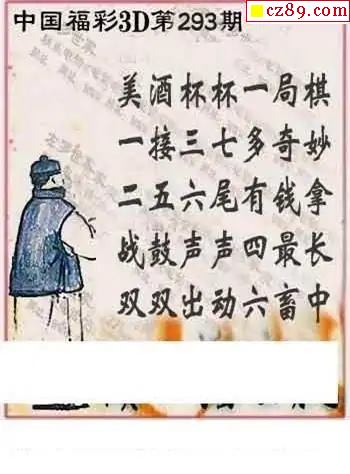 cz89.com
中国福彩3D第293期
美酒杯杯一局棋
一接三七多奇妙
二五六尾有钱拿
战鼓声声四最长
双双出动六畜中